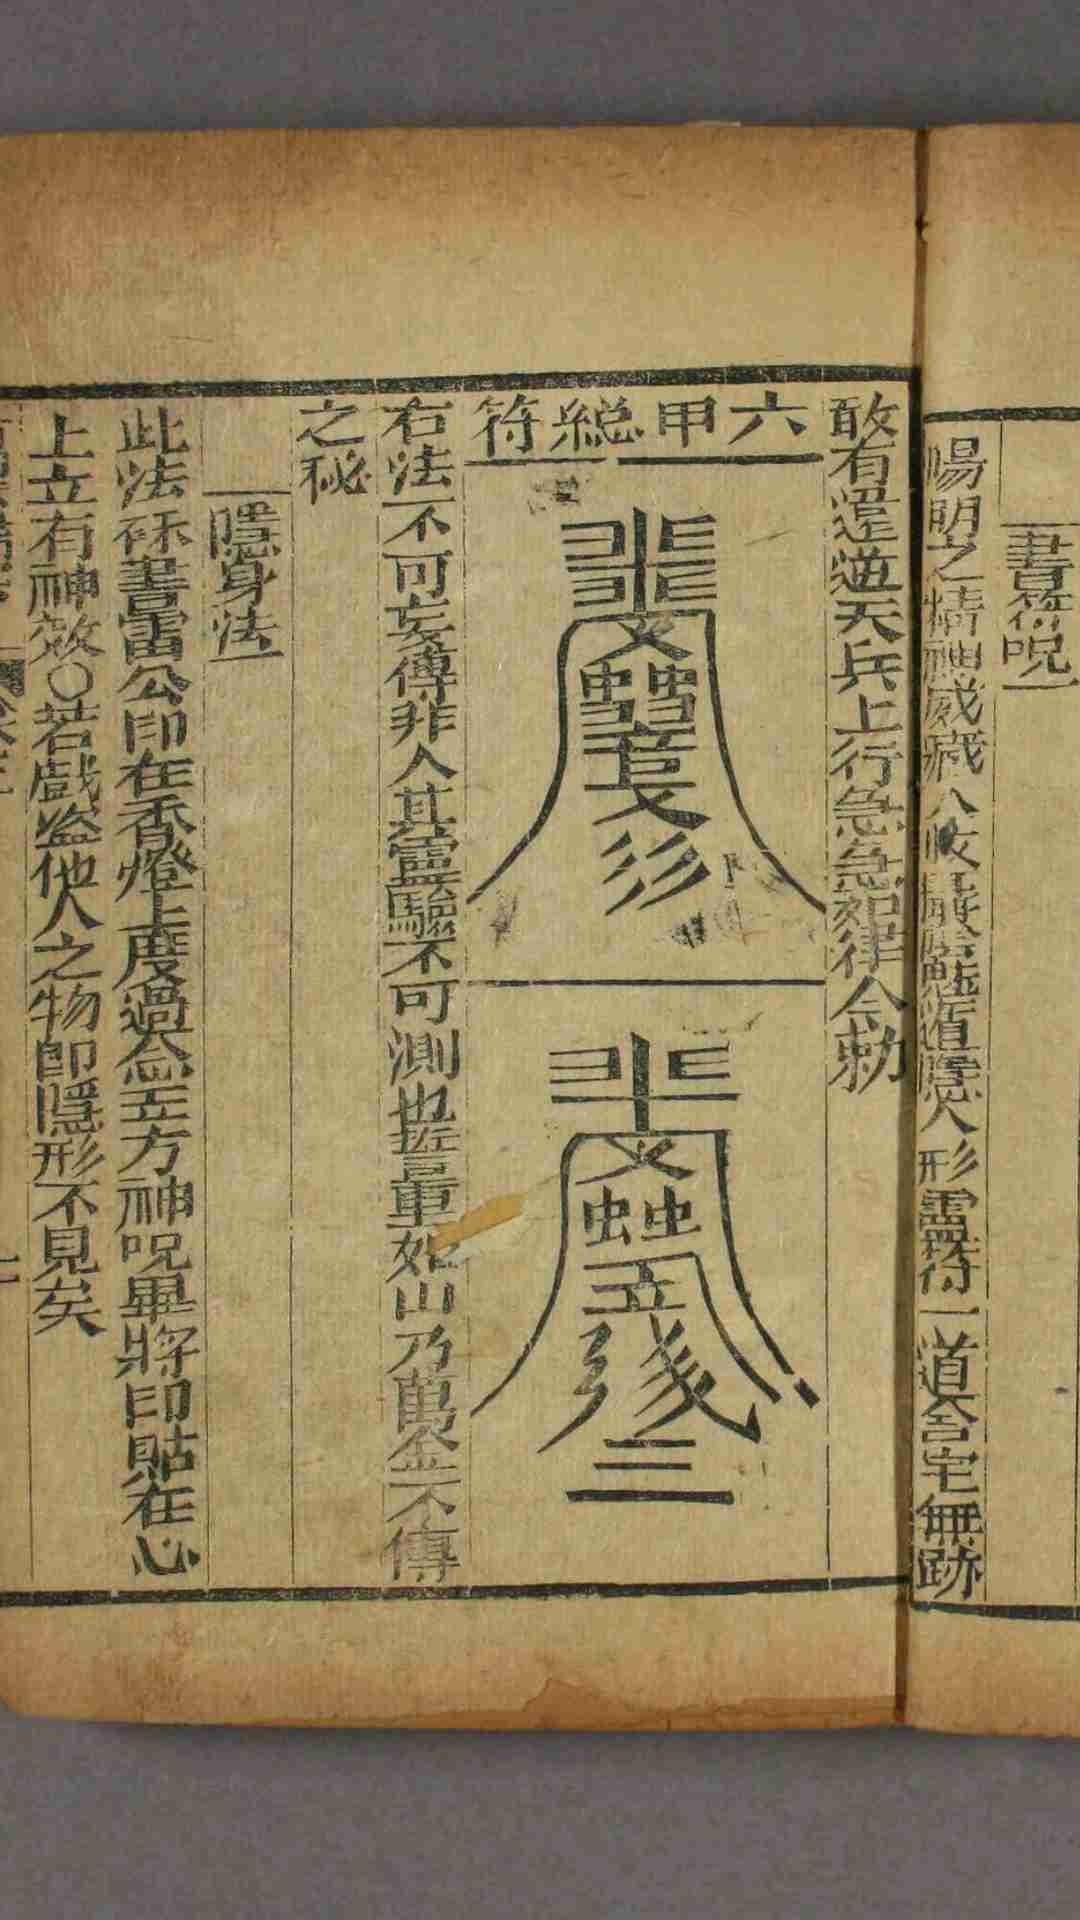 書符呪
陽明之精神威藏人收鬼陰魁遁隱人形靈符一道舍宅無跡
敢有違逆天兵上行急急如律令勅
六甲総符
右法不可妄傳非人其靈驗不可測也誓重如山乃萬金不傳
之秘
隱身法
此法硃書雷公印在香燈上度過念五方神呪畢將印貼在心
上立有神效○若戲盗他人之物即隱形不見矣